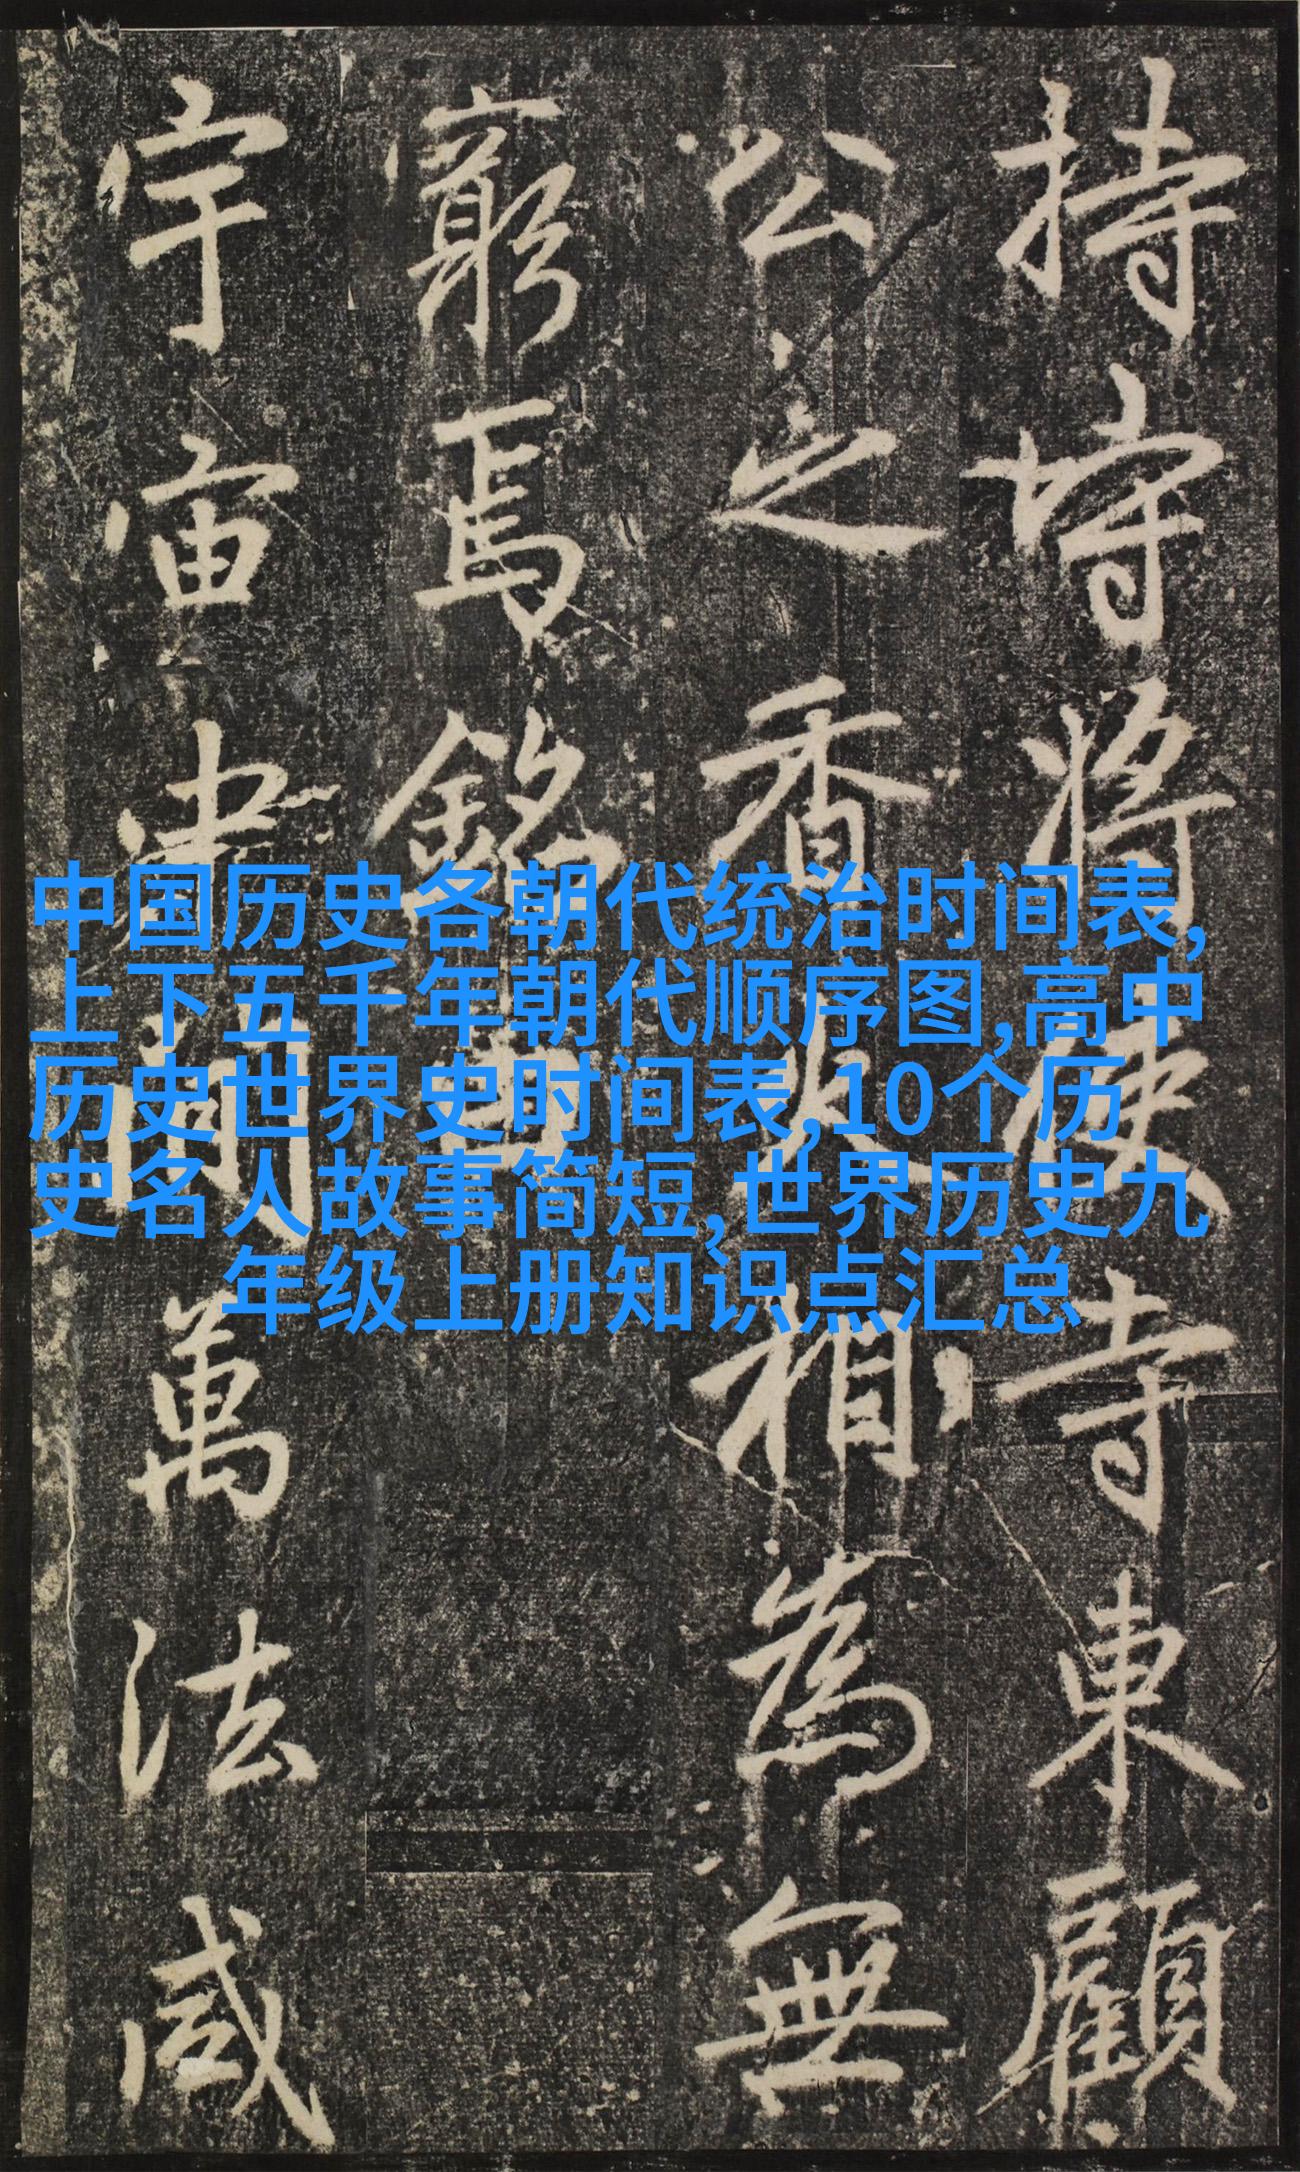 持守将使寺東顧
公之香火相為無
窮焉銘曰
宇宙之間萬法咸
中国历史各朝代统治时间表,
上下五千年朝代顺序图,高中
历史世界史时间表,10个历
史名人故事简短,世界历史九
年级上册知识点汇总